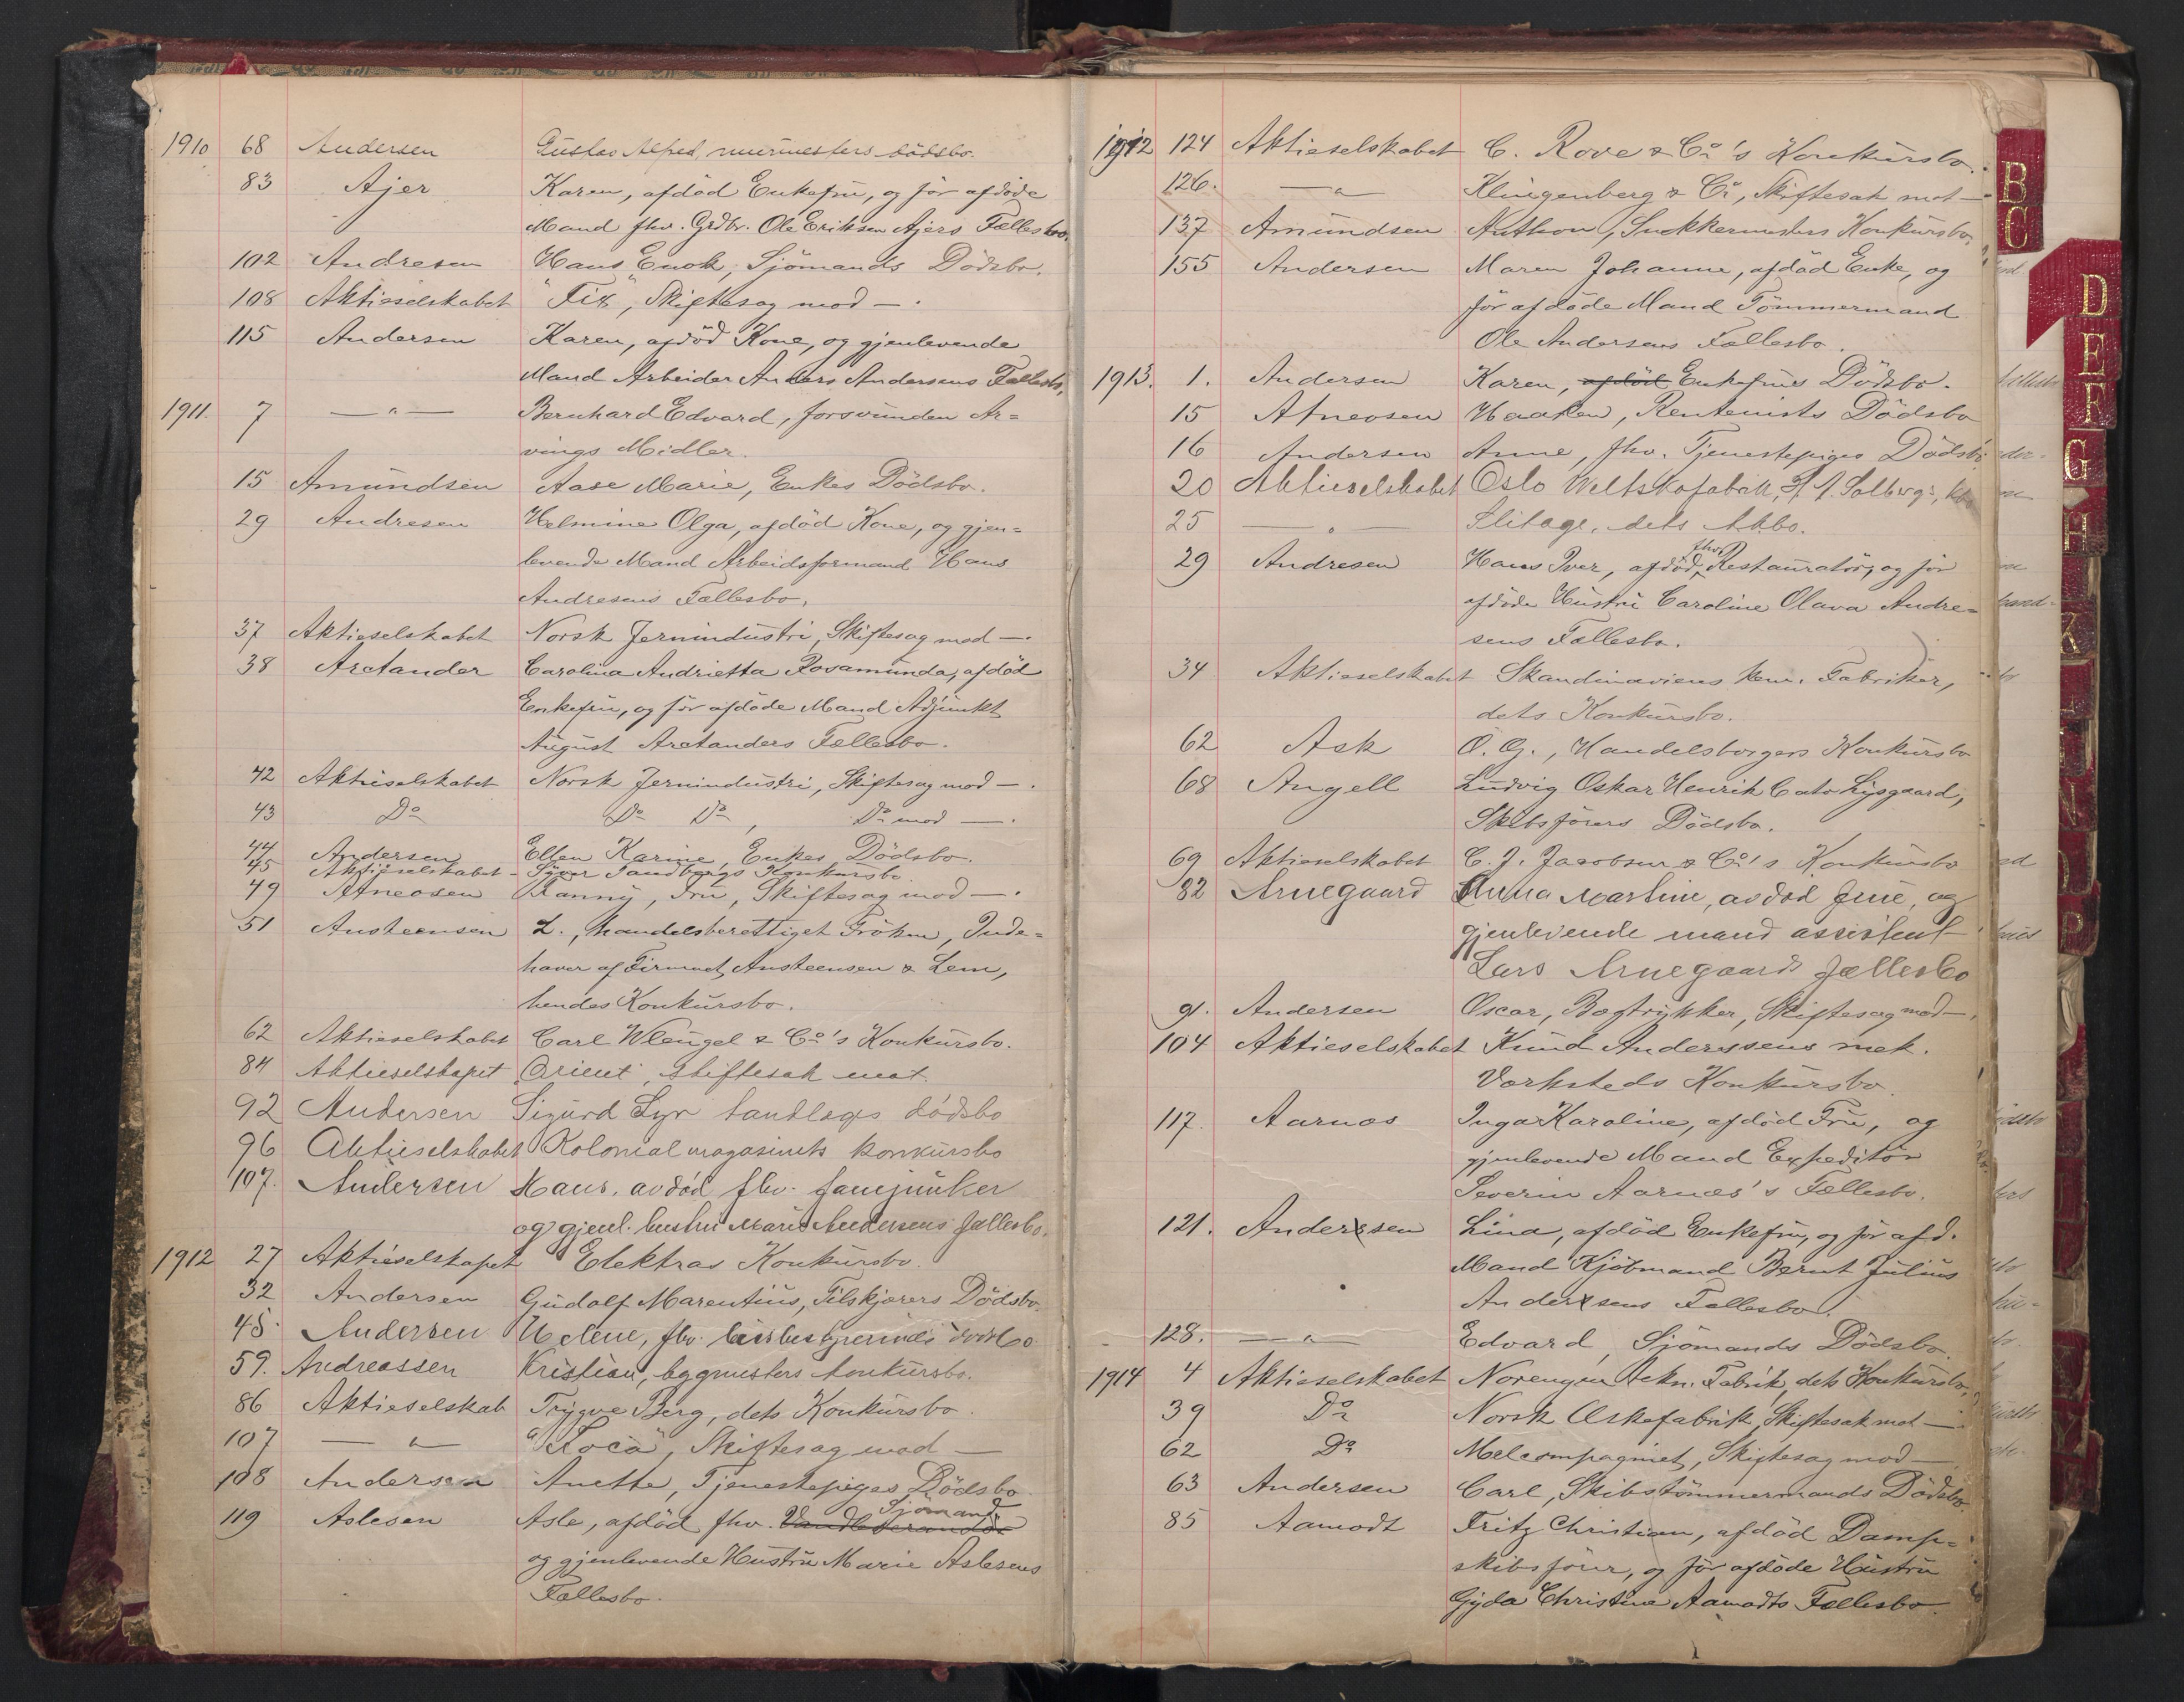 1910 68 Andersen Gustav Alfred, murmesters dödsbo.
83 Ajer Karen, afdöd Enkefru, og før afdøde
Mand fhv. Grdbr. Ole Eriksen Ajers Fællesbo.
102 Andresen Hans Enok, Sjömands Dödsbo.
108 Aktieselskabet "Fix", Skiftesag mod — .
115 Andersen Karen, afdöd Kone, og gjenlevende
Mand Arbeider Anders Andersens Fællesbo.
1911. 7 — " — Bernhard Edvard, forsvunden Ar=
vings Midler.
15 Amundsen Aase Marie, Enkes Dödsbo.
29 Andresen Helmine Olga, afdöd Kone, og gjen=
levende Mand Arbeidsformand Hans
Andresens Fællesbo.
37 Aktieselskabet Norsk Jernindustri, Skiftesag mod — .
38 Arctander Carolina Andrietta Rosamunda, afdöd
Enkefru, og før afdøde Mand Adjunkt
August Arctanders Fællesbo.
42 Aktieselskabet Norsk Jernindustri, Skiftesag mod — .
43 Do Do Do, Do mod — .
44 Andersen Ellen Karine, Enkes Dödsbo.
45 Aktieselskabet - Iver Sandbergs Konkursbo
49 Afneosen Fanny, Fru, Skiftesag mod — .
51 Austeensen L., handelsberettiget Fröken, Inde=
haver af Firmaet Austeensen & Lem,
hendes Konkursbo.
62 Aktieselskabet Carl Wleügel & Co's Konkursbo.
84 Aktieselskapet Orient, skiftesak mot.
92 Andersen Sigurd Lyr tandlæges dödsbo
96 Aktieselskabet Kolonialmagasinets konkursbo
107. Andersen Hans, avdöd fhv. fanejunker
og gjenl. hustru Marie Andersens fællesbo.
1912 27 Aktieselskapet Elektras Konkursbo.
32 Andersen Gudolf Marentius, Tilskjærers Dödsbo.
45. Andersen Helene, fhv. husbestyrerindes dödsbo
59. Andreassen Kristian, bygmesters konkursbo.
86 Aktieselskab Trygve Berg, dets Konkursbo.
107 — " — "Loca", Skiftesag mod —
108 Andersen Anette, Tjenestepiges Dödsbo
119 Aslesen Asle, afdöd fhv. Sjömand
og gjenlevende Hustru Marie Aslesens
Fællesbo.
1912 124 Aktieselskabet C. Rove & Co's Konkursbo.
126. — " — Klingenberg & Co, Skiftesak mot —
137 Amundsen Anthon, Snekkermesters Konkursbo.
155 Andersen Maren Johanne, afdöd Enke, og
før afdøde Mand Tömmermand
Ole Andersens Fællesbo.
1913. 1. Andersen Karen, afdöd Enkefrues Dödsbo.
15 Afneosen Haaken, Rentenists Dödsbo
16 Andersen Anne, fhv. Tjenestepiges Dödsbo
20 Aktieselskabet Oslo Weltskofabrik, Solberg, kbo
25 — " — Slitage, dets kbo.
29 Andresen Hans Iver, afdöd fhv. Restauratör, og før
afdøde Hustru Caroline Olava Andre=
sens Fællesbo.
34 Aktieselskabet Skandinaviens kem. Fabriker,
dets Konkursbo.
62 Ask O. G., Handelsborgers Konkursbo
68 Angell Ludvig Oskar Henrik Cato Lysgaard,
Skibsförers Dödsbo.
69 Aktieselskabet C. J. Jacobsen & Co's Konkursbo
82 Arnegaard Anna Martine, avdöd frue, og
gjenlevende mand assistent
Lars Arnegaards fællesbo
91. Andersen Oscar, Bogtrykker, Skiftesag mod — .
104 Aktieselskabet Knud Anderssens mek.
Værksteds Konkursbo.
117. Aarnæs Inga Karoline, afdöd Fru, og
gjenlevende Mand Expeditör
Severin Aarnæs's Fællesbo.
121. Andersen Lina, afdöd Enkefru, og før afd.
Mand Kjöbmand Bernt Julius
Andersens Fællesbo.
128. — " — Edvard, Sjömands Dödsbo.
1914 4 Aktieselskabet Norengros tekn. Fabrik, dets Konkursbo.
39 Do Norsk Æskefabrik, Skiftesak mot —
62 Do Melcompagniet, Skiftesag mod —
63 Andersen Carl, Skibstömmermands Dödsbo.
85 Aamodt Fritz Christian, afdöd Damp=
skibsförer, og før afdøde Hustru
Gyda Christine Aamodts Fællesbo.
B
C
D
E
F
G
H
K
L
N
O
P